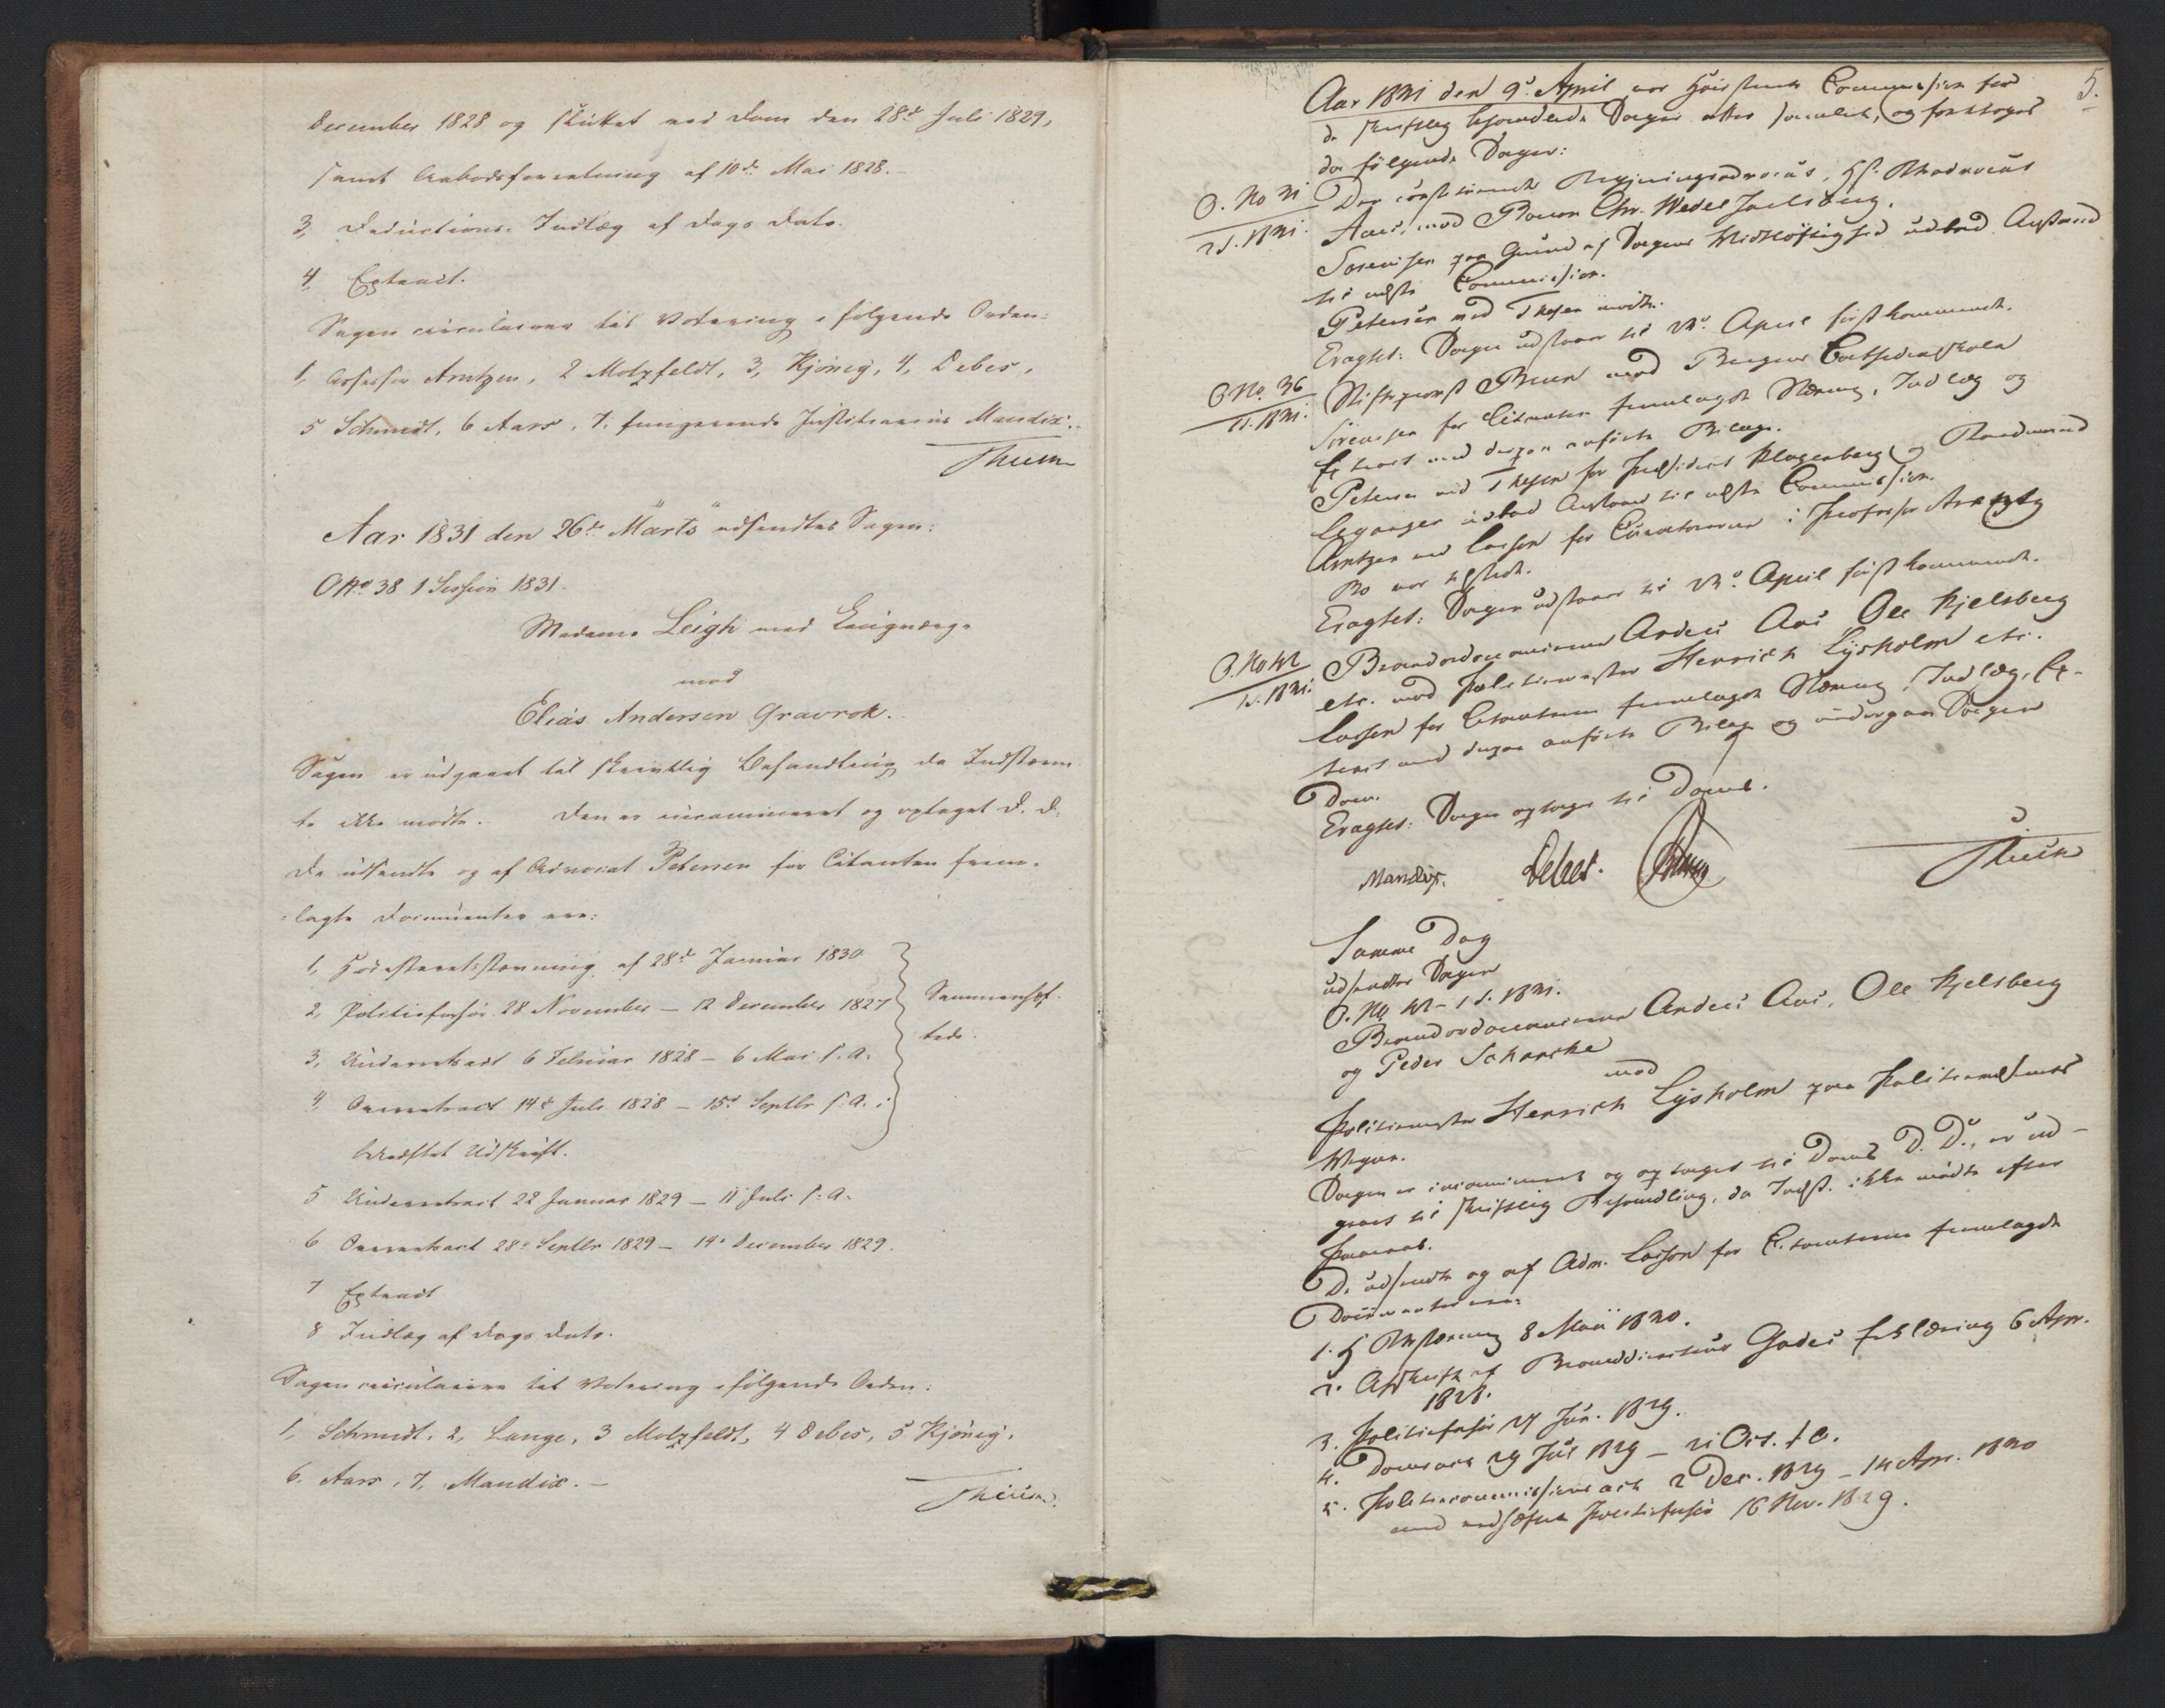 December 1828 og sluttet med Dom den 28de Juli 1829,
samt Aabodsforretning af 10de Mai 1828.
3, Deductions-Indlæg af Dags Dato.
4 Extract.
Sagen circulerer til Votering i følgende Orden:
1, Assessor Arntzen, 2 Motzfeldt, 3, Kjönig, 4, Debes,
5 Schmidt, 6 Aars, 7. fungerende Justitiarius Mandix.
Thulin
Aar 1831 den 26de Marts udsendtes Sagen:
O No 38 1 Session 1831.
Madame Leigh med Laugværge
mod
Elias Andersen Gravrok.
Sagen er udgaaet til skriftlig Behandling da Indstævn
te ikke mødte. Den er incamineret og optaget D. D.
De udsendte og af Advocat Petersen for Citanten frem-
lagte Documenter ere:
1, Høiesteretsstævning af 28de Januar 1830
2 Politieforhør 28 November – 12 December 1827
3, Underretsact 6 Februar 1828 – 6 Mai s. A.
4, Overretsact 14de Juli 1828 – 15de Septbr s. A. i
bekræftet Udskrift.
Sammenhef-
tede.
5 Underretsact 22 Januar 1829 – 11 Juli s. A.
6 Overretsact 28de Septbr 1829 – 14de December 1829.
7 Extract
8 Indlæg af Dags Dato.
Sagen circulerer til Votering i følgende Orden:
1, Schmidt, 2, Lange, 3 Motzfeldt, 4 Debes, 5 Kjönig,
6. Aars, 7, Mandix.
Thulin
5.
Aar 1831 den 9de April var Høiesterets Commission for
de skriftlig behandlede Sager atter samlet, og foretoges
der følgende Sager:
O. No 31
2 S. 1831.
Den constituerede Regjeringsadvocat, HR. Advocat
Aars, mod Baron Chr. Wedel Jarlsberg.
Sørensen paa Grund af Sagens Vidtløftighed udbad Anstand
til næste Commission.
Petersen med Thesen mødte.
Eragtet: Sagen udstaaer til 23de April førstkommende.
O No. 36
1 S. 1831.
Stiftsprovst Bruun mod Bergens Cathedralskole
Sörensen for Citanten fremlagde Stævning, Indlæg og
Extract med derpaa anførte Bilage.
Petersen ved Thesen for Præsident Klagenberg og Raadmand
Leganger udbad Anstand til næste Commission.
Arntzen ved Lasson for Curatorerne i Professor Arentz
Bo var tilstede.
Eragtet: Sagen udstaaer til 23de April førstkommende.
O. No 42
1 S. 1831.
Brandordonnantserne Anders Aas Ole Kjelsberg
etc. mod Politiemester Henrich Lysholm etc.
Lasson for Citanterne fremlagde Stævning, Indlæg, Ex-
tract med derpaa anførte Bilag og indgav Sagen
Dom.
Eragtet: Sagen optages til Doms.
Mandix. Debes. Thulin
Samme Dag
udsendtes Sagen
O. No 42 – 1 S. 1831.
Brandordonnantserne Anders Aas, Ole Kjelsberg
og Peder Scharcke
mod
Politiemester Henrich Lysholm paa Politievæsenets
Vegne.
Sagen er incamineret og optaget til Doms D. D., er ud-
gaaet til skriftlig Behandling, da Indst. ikke mødte efter
Paaraab.
De udsendte og af Adv. Lasson for Citanterne fremlagde
Documenter ere:
1. H Rstævning 8 Mai 1830.
2. Afskrift af Branddirecteur Gades Erklæring 6 Apr.
1828.
3. Politieforhør 27 Jun. 1829.
4. Domsact 29 Jul 1829 – 21 Oct. s. A.
5. Politiecommissionsact 2 Dec. 1829 – 14 Apr. 1830
med vedhæftet Politieforhör 16 Nov. 1829.